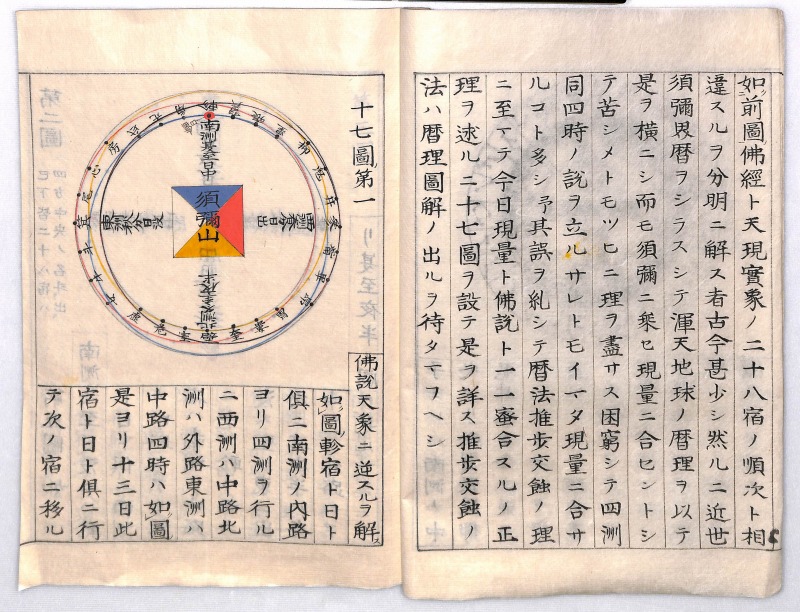 如前圖佛經ト天現實象ノ二十八宿ノ順次ト相
違スルヲ分明ニ解ス者古今甚少シ然ルニ近世
須彌界暦ヲシラスシテ渾天地球ノ暦理ヲ以テ
是ヲ横ニシ而モ須彌ニ乗セ現量ニ合セントシ
テ苦シメトモツヒニ理ヲ盡サス困窮シテ四洲
同四時ノ説ヲ立ルサレトモイマタ現量ニ合サ
ルコト多シ予其誤ヲ糺シテ暦法推歩交蝕ノ理
ニ至マテ今日現量ト佛説ト一一蜜合スルノ正
理ヲ述ル二十七圖ヲ設テ是ヲ詳ス推歩交蝕ノ
法ハ暦理圖解ノ出ルヲ待タマフヘシ
十七圖第一
須彌山
南洲夏至日中
西洲春分日出
東洲秋分日没
北洲冬至夜半
佛説天象ニ逆スルヲ解ス
如圖軫宿ト日ト
俱ニ南洲ノ内路
ヨリ四洲ヲ行ル
ニ西洲ハ中路北
洲ハ外路東洲ハ
中路四時ハ如圖
是ヨリ十三日此
宿ト日ト俱ニ行
テ次ノ宿ニ移ル